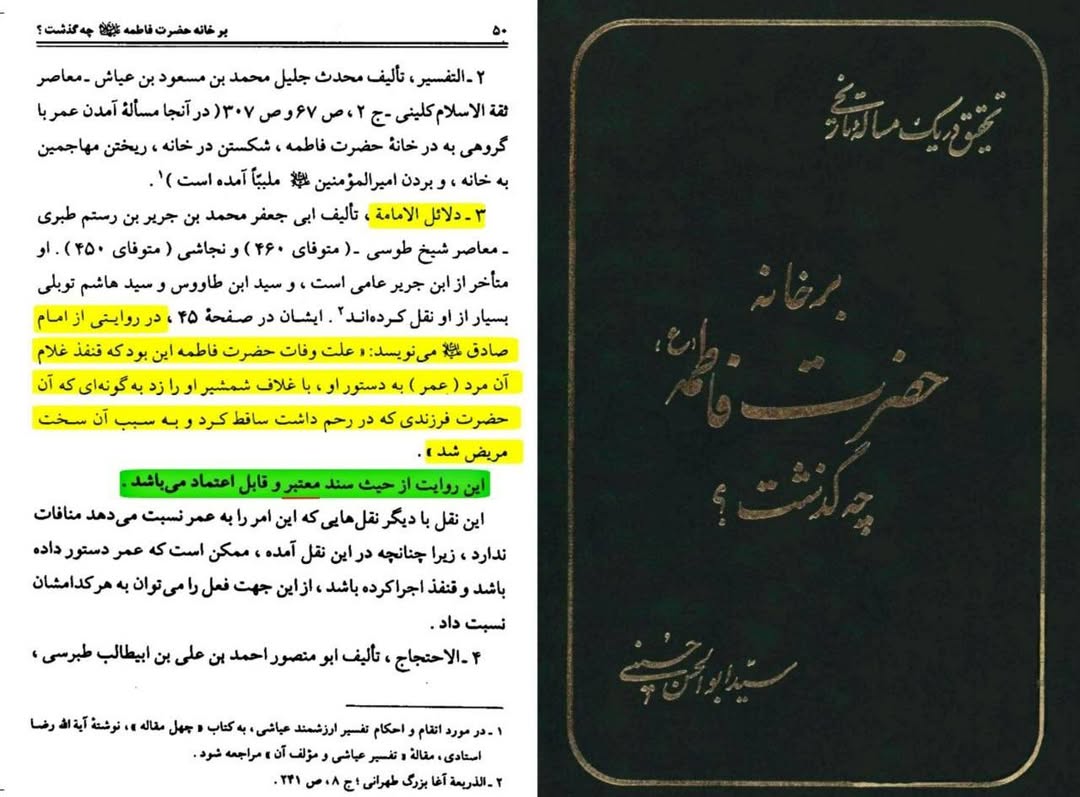 ۵۰
بر خانه حضرت فاطمه علیها السلام چه گذشت؟
۲ ـ التفسیر، تألیف محدث جلیل محمد بن مسعود بن عیاش ـ معاصر
ثقة الاسلام کلینی ـ ج ۲، ص ۶۷ و ص ۳۰۷( در آنجا مسألهٔ آمدن عمر با
گروهی به در خانهٔ حضرت فاطمه، شکستن در خانه، ریختن مهاجمین
به خانه، و بردن امیرالمؤمنین علیه السلام ملبباً آمده است )۱.
۳ ـ دلائل الامامة، تألیف ابی جعفر محمد بن جریر بن رستم طبری
ـ معاصر شیخ طوسی ـ( متوفای ۴۶۰ ) و نجاشی ( متوفای ۴۵۰ ). او
متأخر از ابن جریر عامی است، و سید ابن طاووس و سید هاشم توبلی
بسیار از او نقل کرده‌اند۲. ایشان در صفحهٔ ۴۵، در روایتی از امام
صادق علیه السلام می‌نویسد: «علت وفات حضرت فاطمه این بود که قنفذ غلام
آن مرد ( عمر ) به دستور او، با غلاف شمشیر او را زد به گونه‌ای که آن
حضرت فرزندی که در رحم داشت ساقط کرد و به سبب آن سخت
مریض شد».
این روایت از حیث سند معتبر و قابل اعتماد می‌باشد.
این نقل با دیگر نقل‌هایی که این امر را به عمر نسبت می‌دهد منافات
ندارد، زیرا چنانچه در این نقل آمده، ممکن است که عمر دستور داده
باشد و قنفذ اجرا کرده باشد، از این جهت فعل را می‌توان به هر کدامشان
نسبت داد.
۴ ـ الاحتجاج، تألیف ابو منصور احمد بن علی بن ابیطالب طبرسی،
۱ ـ در مورد اتقام و احکام تفسیر ارزشمند عیاشی، به کتاب «چهل مقاله»، نوشتهٔ آیة الله رضا
استادی، مقالهٔ «تفسیر عیاشی و مؤلف آن» مراجعه شود.
۲ ـ الذریعة آغا بزرگ طهرانی؛ ج ۸، ص ۲۴۱.
تحقیق در یک مساله تاریخی
بر خانه
حضرت فاطمه (ع)
چه گذشت؟
سید ابوالحسن حسینی